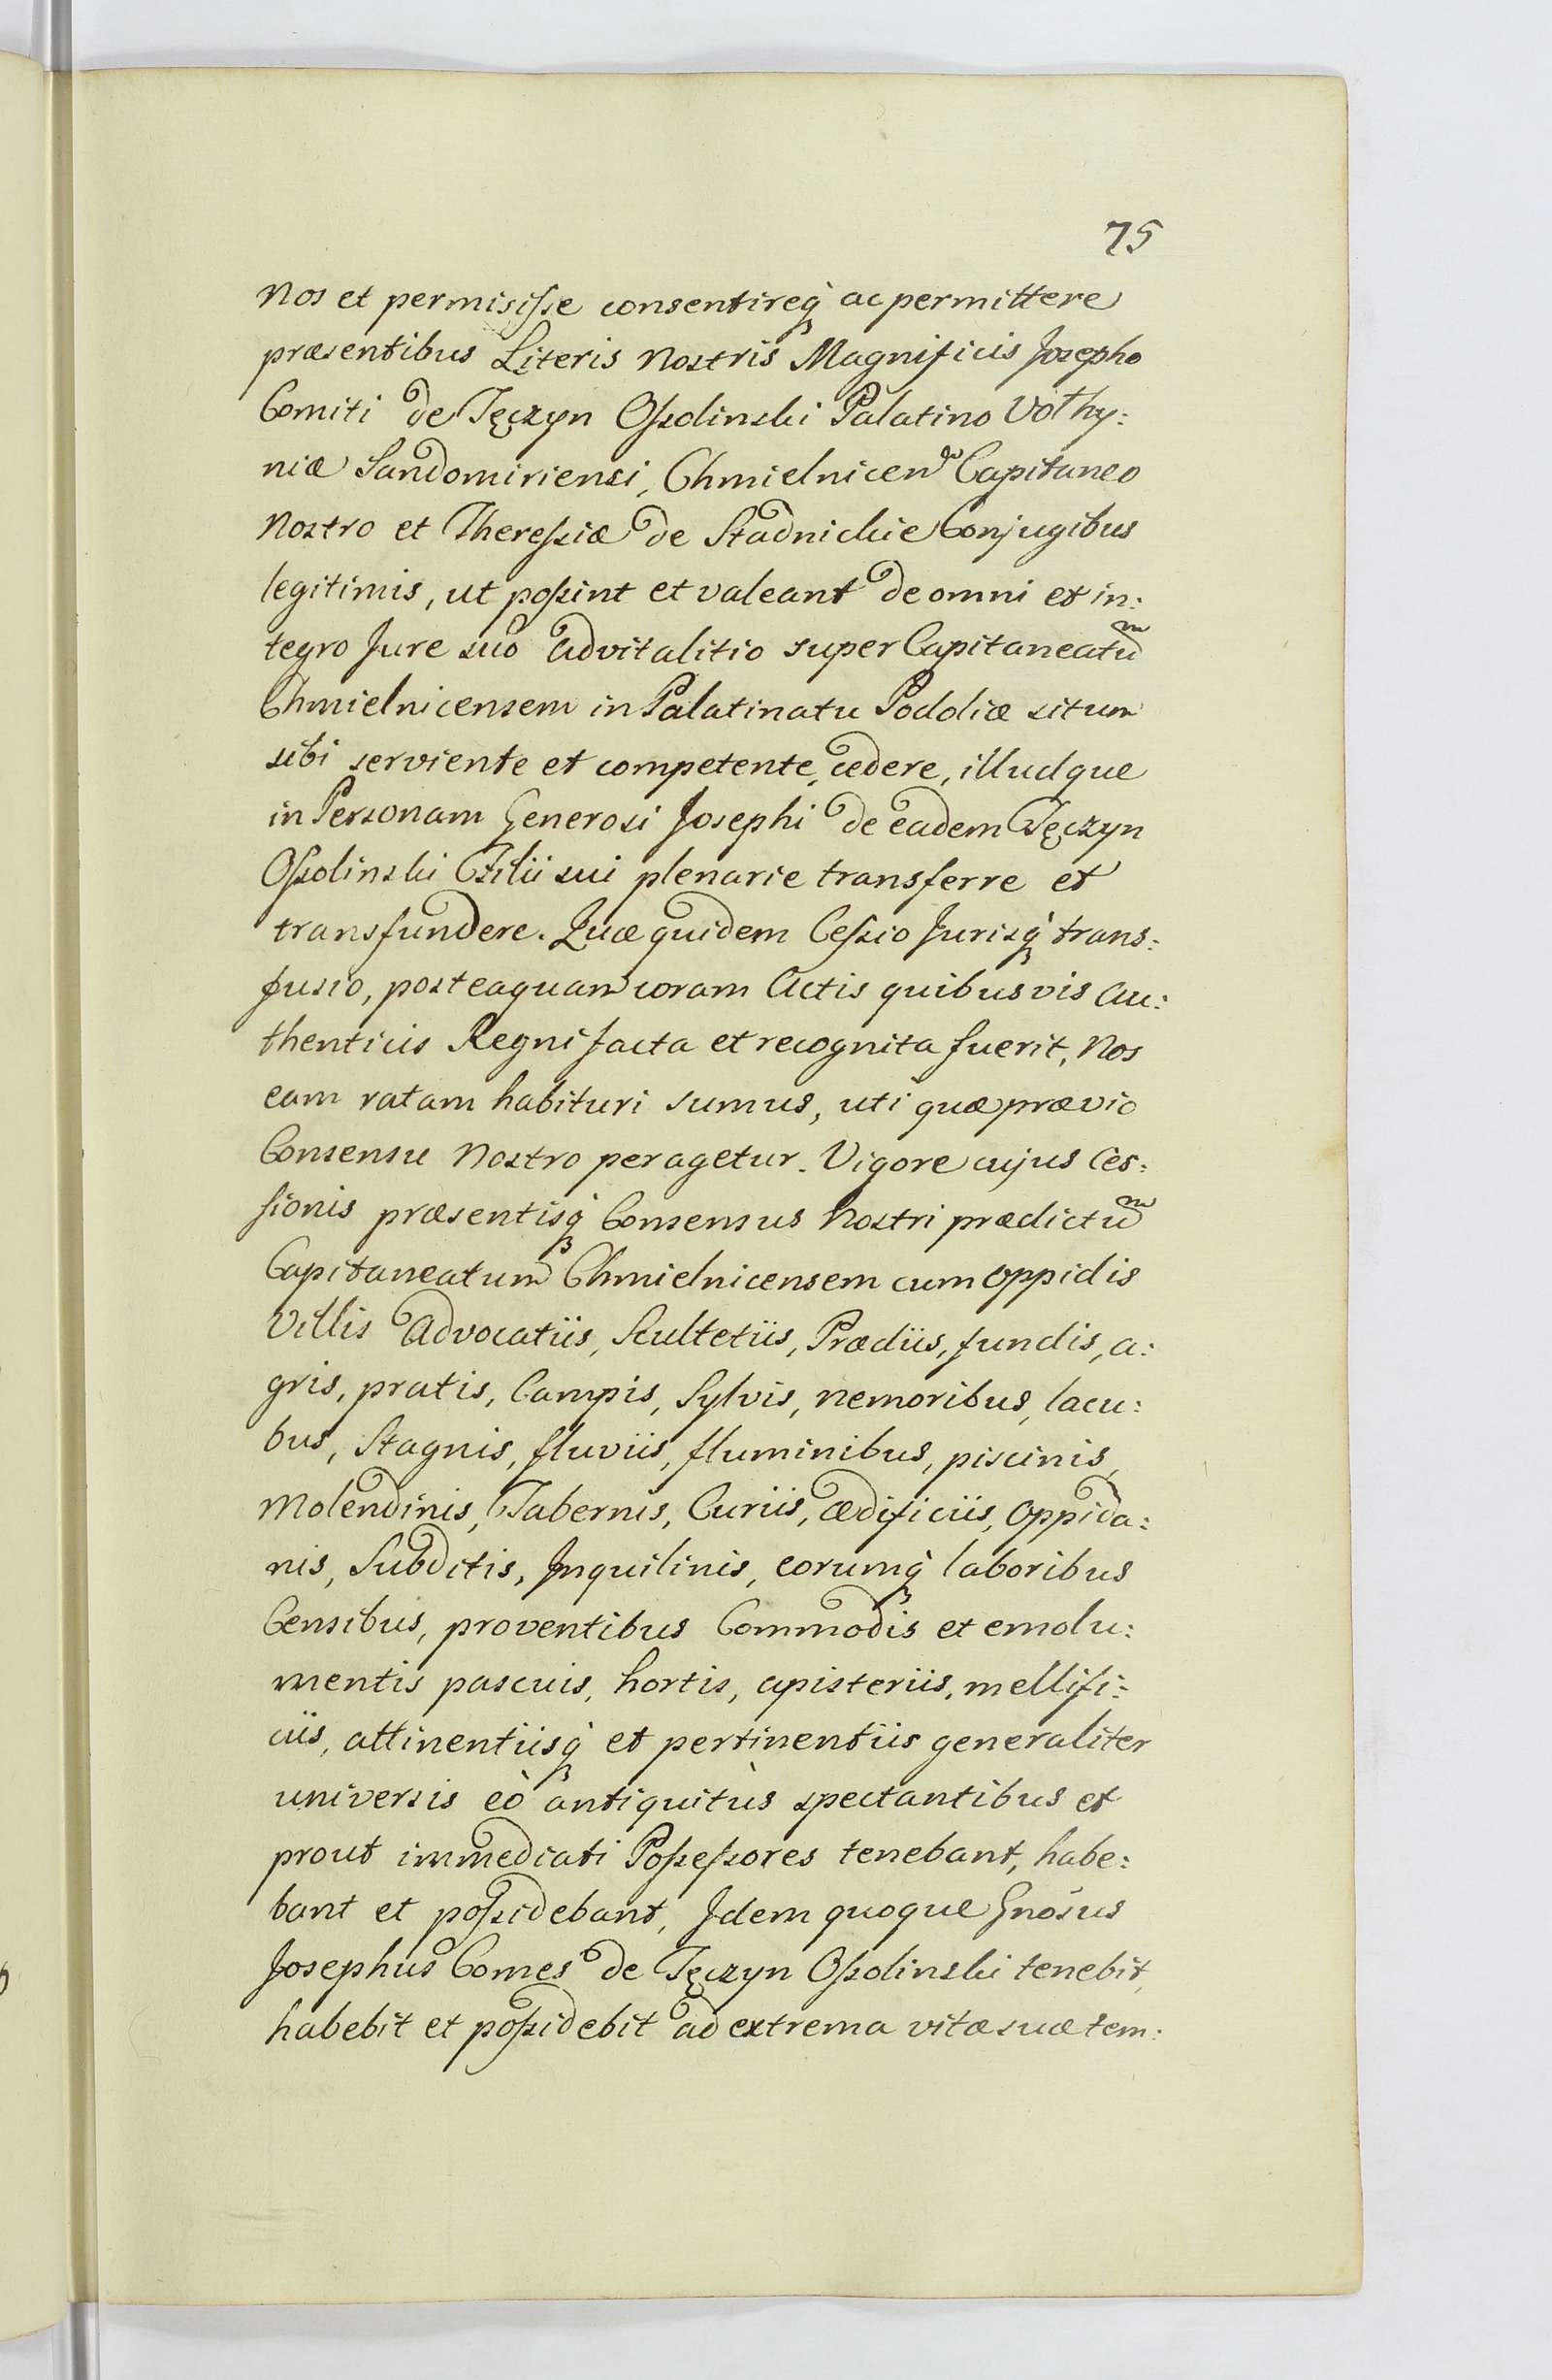 75
Nos et permisisse consentireq́ ac permittere
præsentibus Literis Nostris Magnificis Josepho
Comiti de Tęczyn Ossolinski Palatino Volhy:
niæ Sandomiriensi, Chmielnicen Capitaneo
Nostro et Theressiæ de Stadnickie Conjugibus
legitimis, ut possint et valeant de omni et in:
tegro Jure suo advitalitio super Capitaneatum
Chmielnicensem in Palatinatu Podoliæ situm
sibi serviente et competente, cedere, illudque
in Personam Generosi Josephi de eadem Tęczyn
Ossolinski Filii sui plenarie transferre et
transfundere. Quæ quidem Cessio Jurisq́ trans:
fusio, posteaquam coram Actis quibusvis Au:
thenticis Regni facta et recognita fuerit, Nos
eam ratam habituri sumus, uti quæ prævio
Consensu Nostro peragetur. Vigore cujus Ces:
sionis præsentisq́ Consensus Nostri prædictum
Capitaneatum Chmielnicensem cum oppidis
Villis Advocatiis, Scultetiis, Prædiis, fundis, a:
gris, pratis, Campis, Sylvis, nemoribus, lacu:
bus, Stagnis, fluviis, fluminibus, piscinis,
Molendinis, Tabernis, Curiis, ædificiis, Oppida:
nis, Subditis, Inquilinis, eorumq́ laboribus
Censibus, proventibus Commodis et emolu:
mentis pascuis, hortis, apisteriis, mellifi:
ciis, attinentiisq́ et pertinentiis generaliter
universis eò antiquitùs spectantibus et
prout immediati Possessores tenebant, habe:
bant et possidebant, Idem quoque Gnosus
Josephus Comes de Tęczyn Ossolinski tenebit,
habebit et possidebit ad extrema vitæ suæ tem: